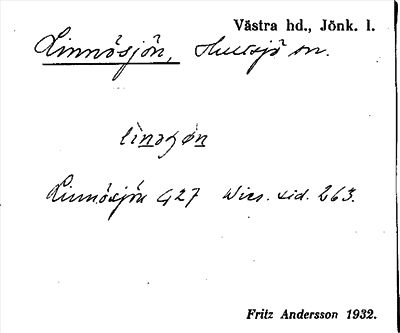 Västra hd., Jönk. l.
Linnåsjön, Hultsjö sn.
Linnåsjön G27 Wies. sid. 263.
Fritz Andersson 1932.